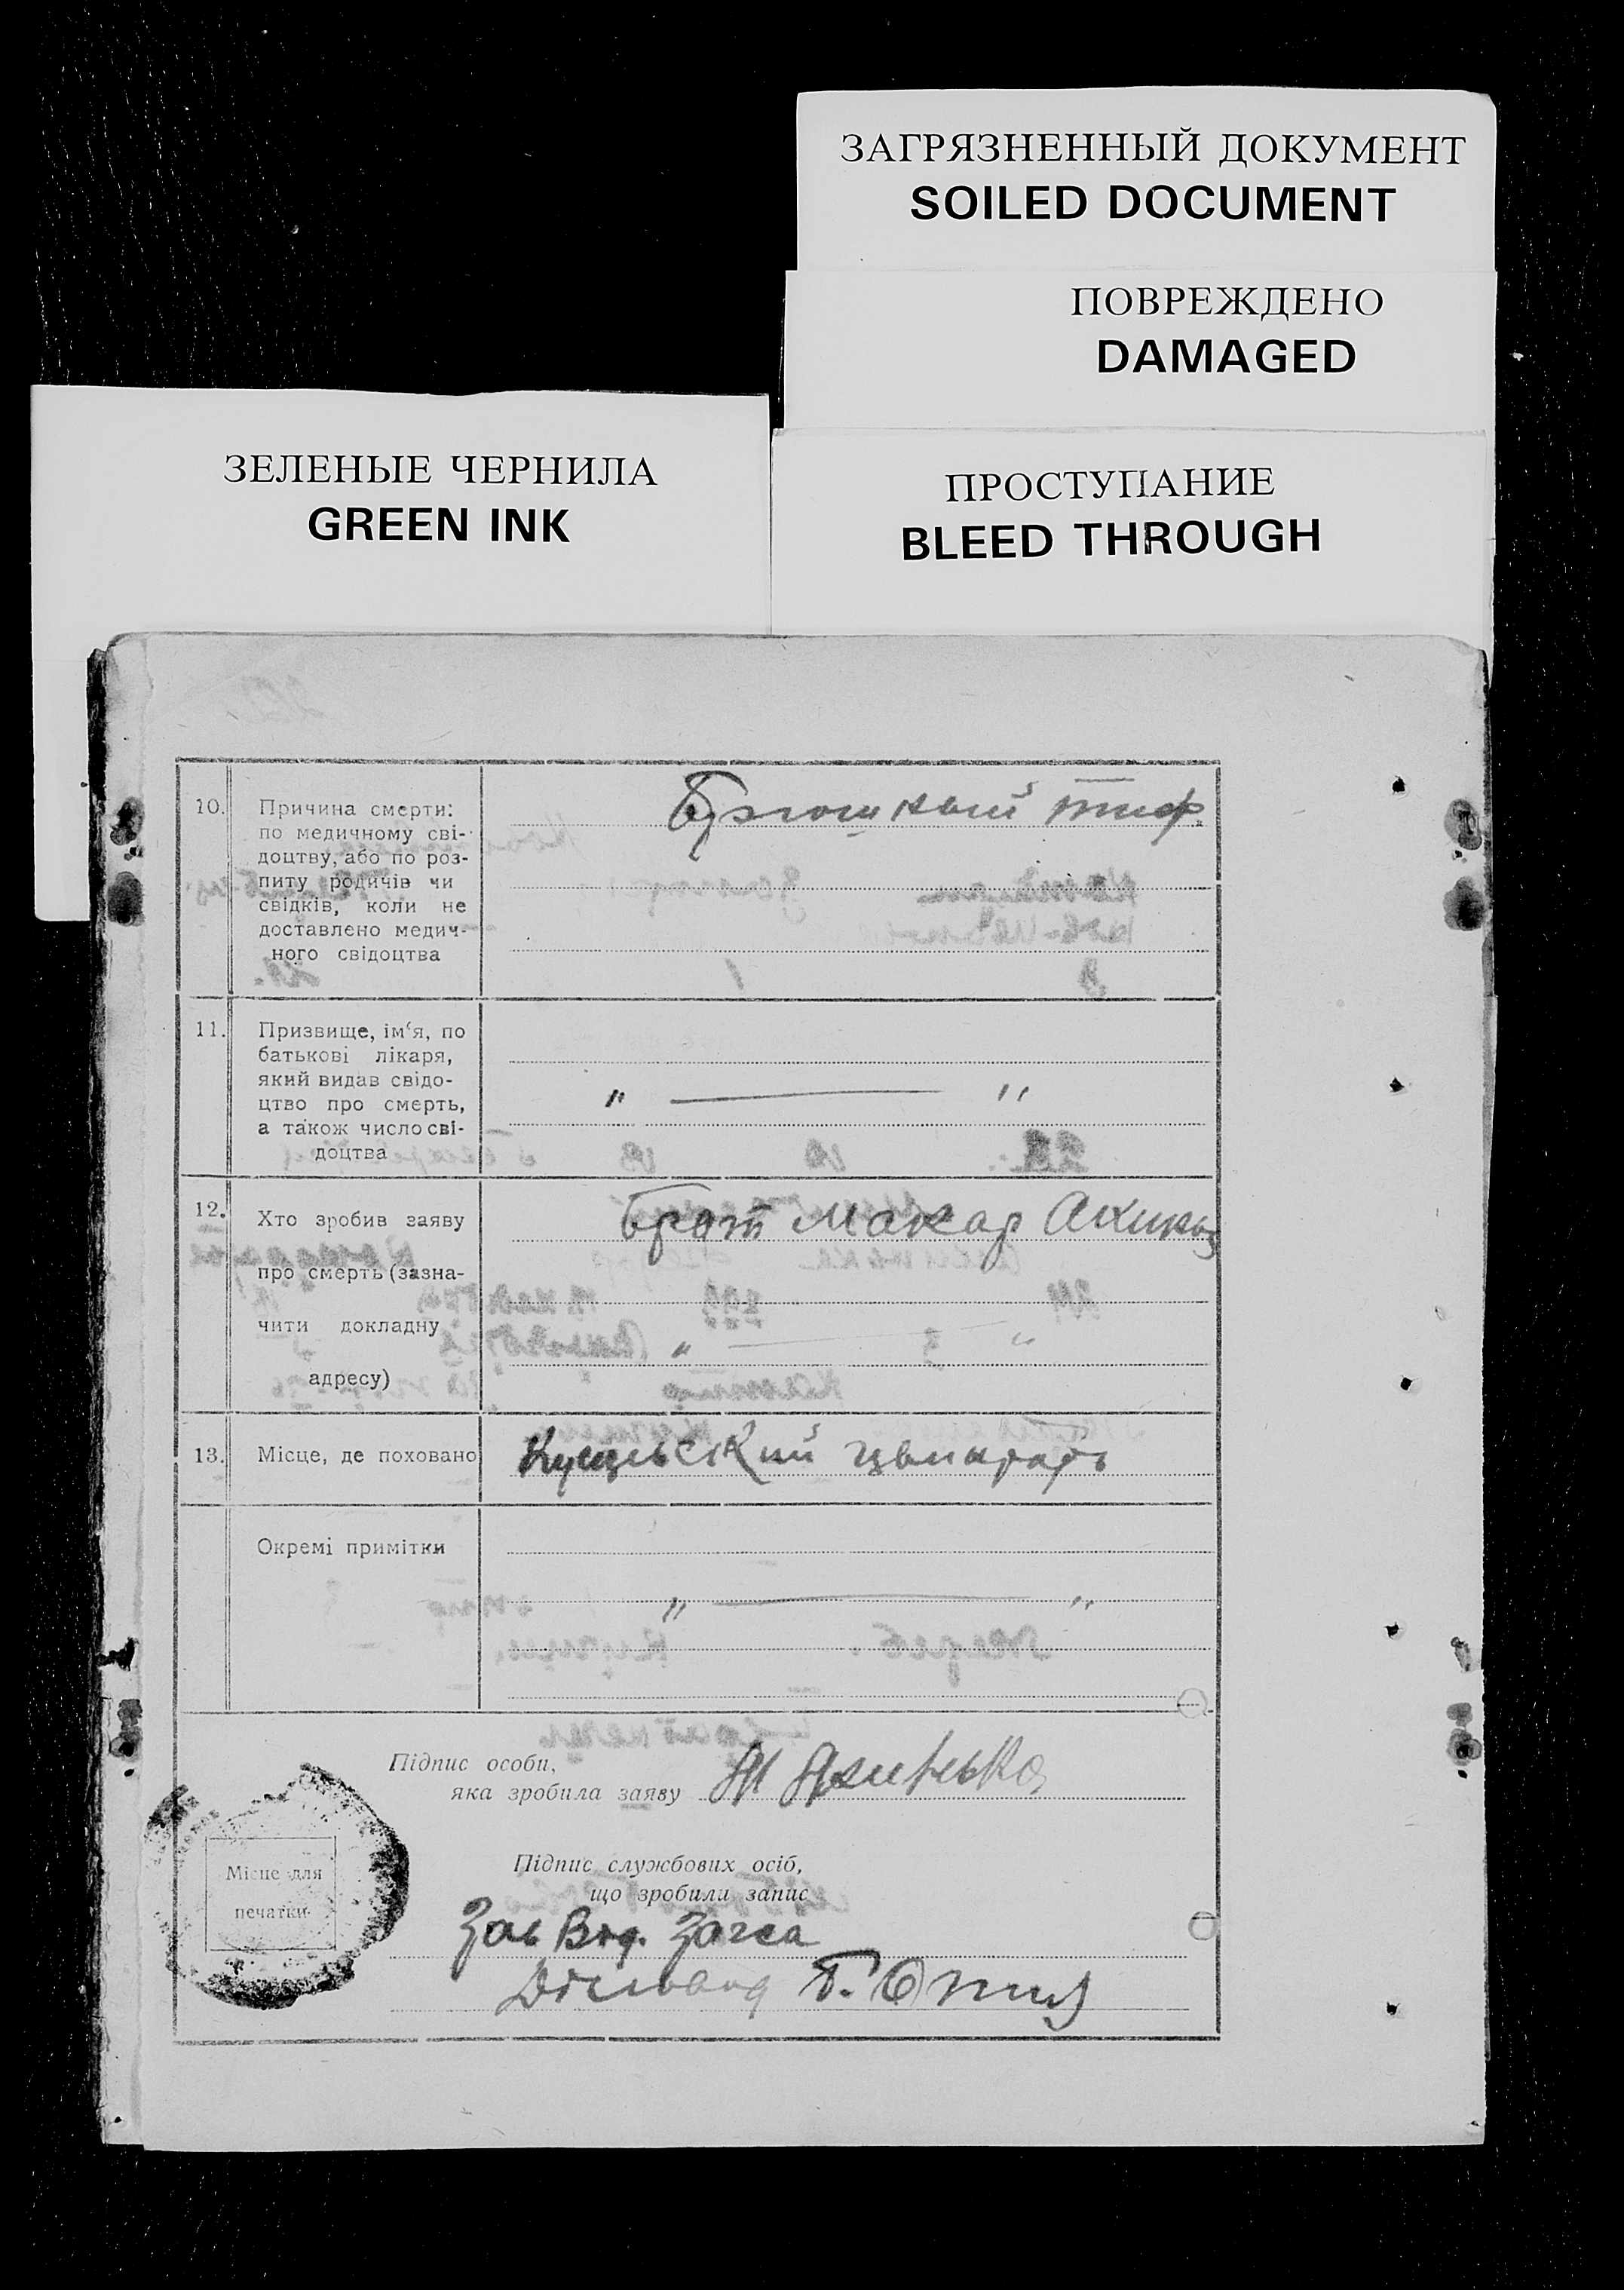 ЗАГРЯЗНЕННЫЙ ДОКУМЕНТ
SOILED DOCUMENT
ПОВРЕЖДЕНО
DAMAGED
ЗЕЛЕНЫЕ ЧЕРНИЛА
GREEN INK
ПРОСТУПАНИЕ
BLEED THROUGH
10. Причина смерти:
по медичному сві-
доцтву, або по роз-
питу родичів чи
свідків, коли не
доставлено медич-
ного свідоцтва
тиф
11. Призвище, ім‘я, по
батькові лікаря,
який видав свідо-
цтво про смерть,
а також число сві-
доцтва
„ — "
12. Хто зробив заяву
про смерть (зазна-
чити докладну
адресу)
Брат Макар
„ — "
13. Місце, де поховано
Окремі примітки
„ — "
Підпис особи,
яка зробила заяву
Місце для
печатки
Підпис службових осіб,
що зробили запис
Зав Від. Загса